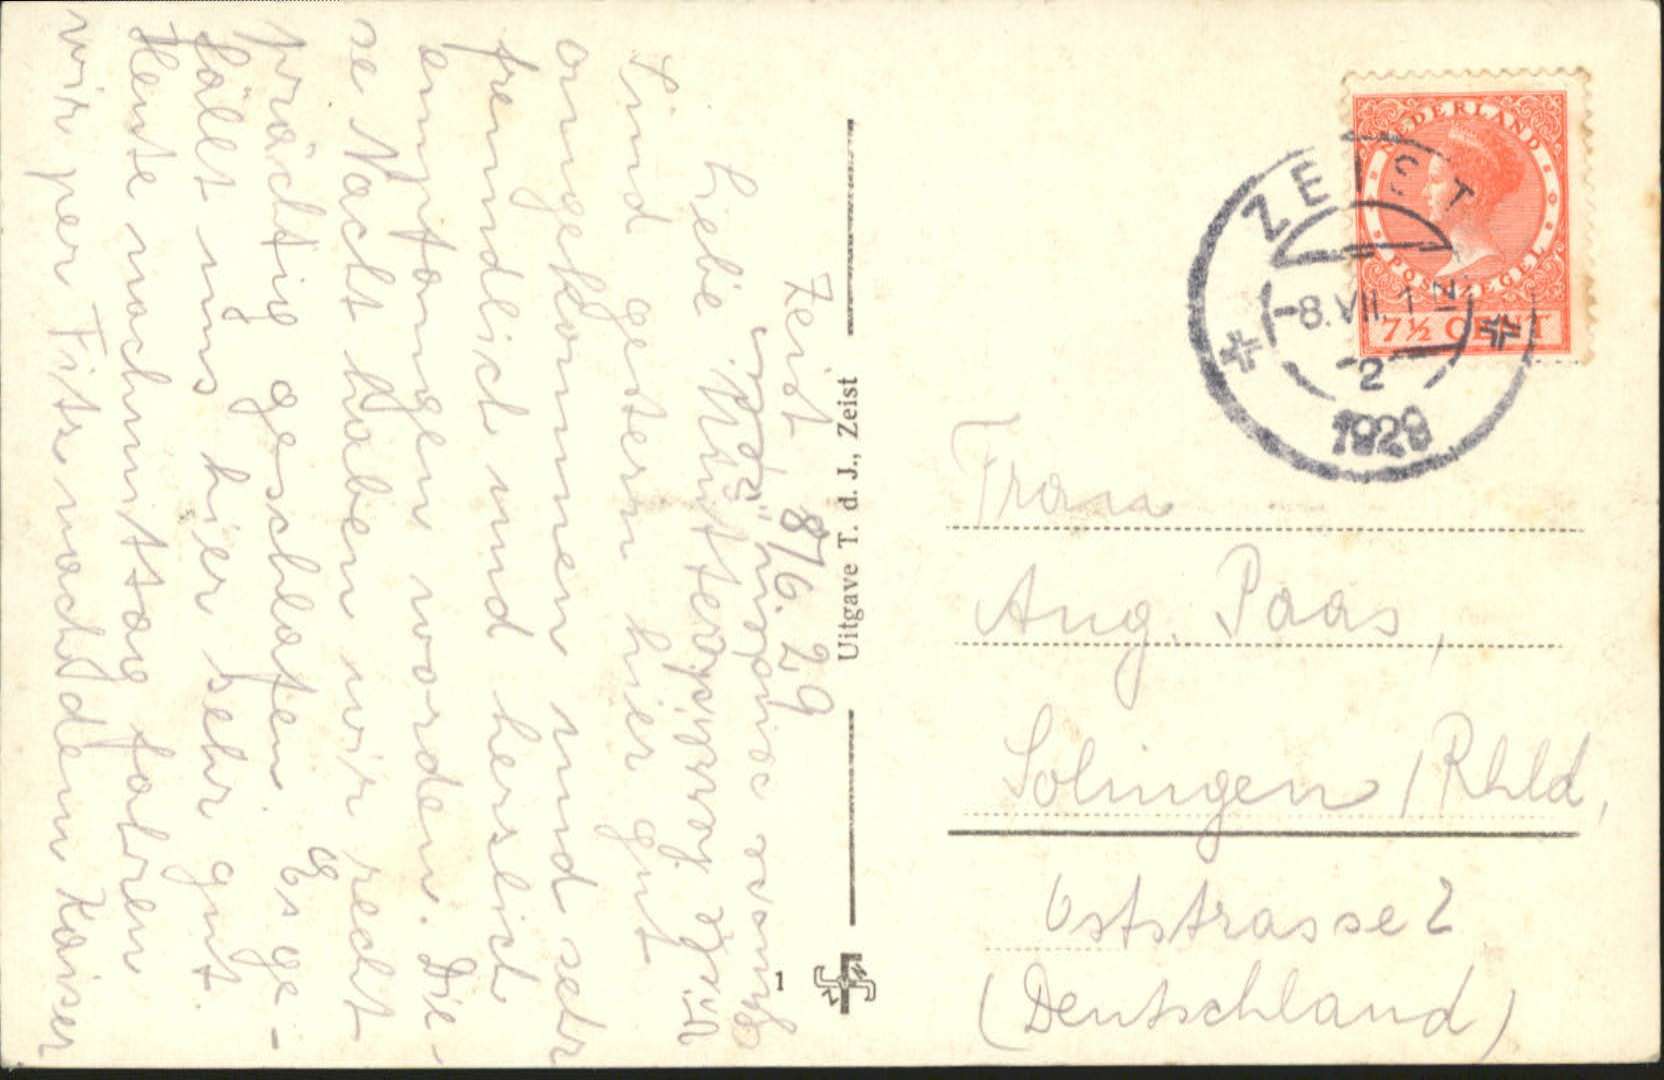 Zeist 8/6. 29
Liebe Mutter,
Sind gestern hier gut
angekommen und sehr
freundlich und herslich
empfangen worden. Die-
se Nacht haben wir recht
prächtig geschlafen. Es ge-
fällt uns hier sehr gut.
Heute nachmittag fahren
wir per Fits nach dem Kaiser
Uitgave T. d. J., Zeist
1
NEDERLAND
POSTZEGEL
7½ CENT
ZEIST
-8.VII.1 N
-2-
1929
Frau
Aug. Paas,
Solingen /Rhld,
Oststrasse 2
(Deutschland)